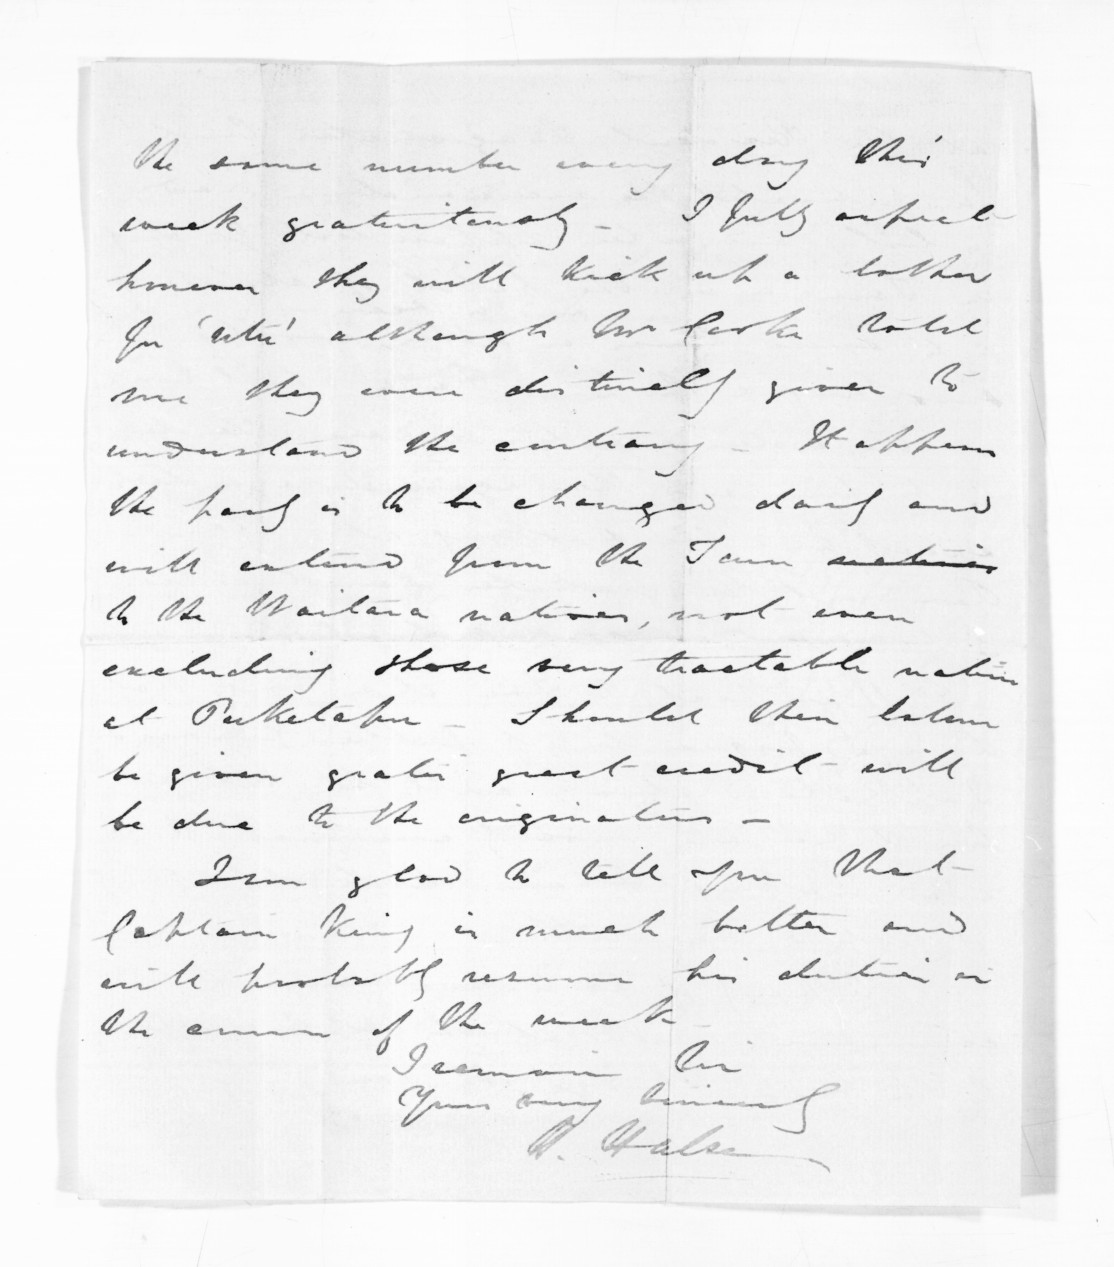 the same number every day this
week gratuitously - I fully expect
however they will kick up a bother
for 'utu' although Mr Cooke told
me they were distinctly given to
understand the contrary - It appears
the party is to be changed daily and
will extend from the Town natives
to the Waitara natives, not even
excluding those very tractable natives
at Puketapu - Should their labour
be given gratis great credit will
be due to the originators -
I am glad to tell you that
Captain King is much better and
will probably resume his duties in
the course of the week
I remain Sir
Yours very sincerely
H. Halse